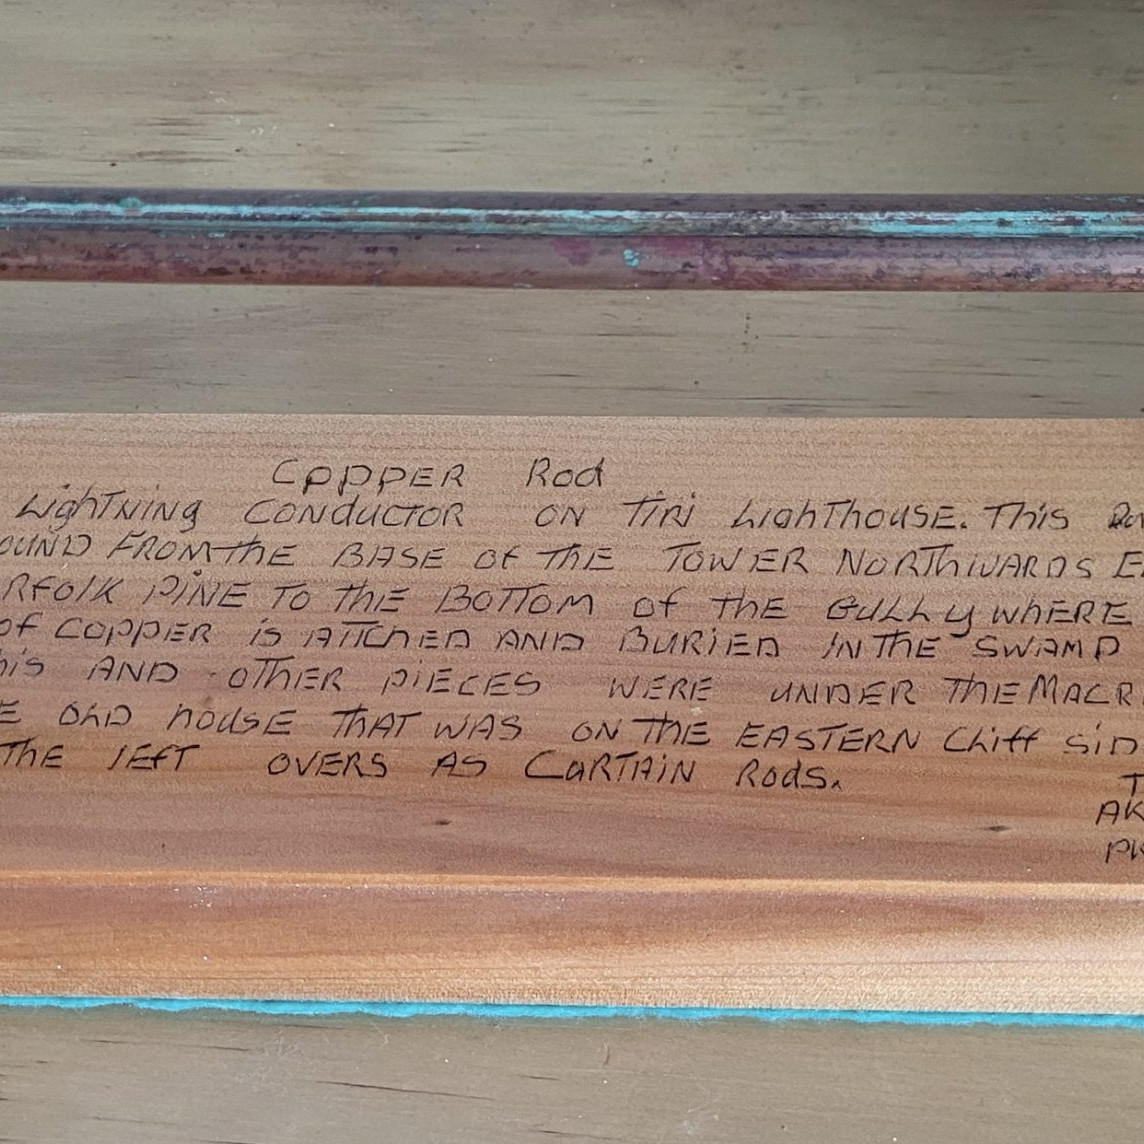 COPPER Rod
LighTNING CONDUCTOR ON TIRI LIGHTHOUSE. This
OUND FROM THE BASE OF THE TOWER NORTHWARDS
RFOLK PINE TO THE BOTTOM OF THE GULLY WHERE
OF COPPER iS ATTCHED AND BURIED IN THE SWAMP
his AND OTHER PIECES WERE UNDER THE MACR
E OLD HOUSE THAT WAS ON THE EASTERN Cliff sid
THE lEfT OVERS AS CURTAIN Rods.
T
AK